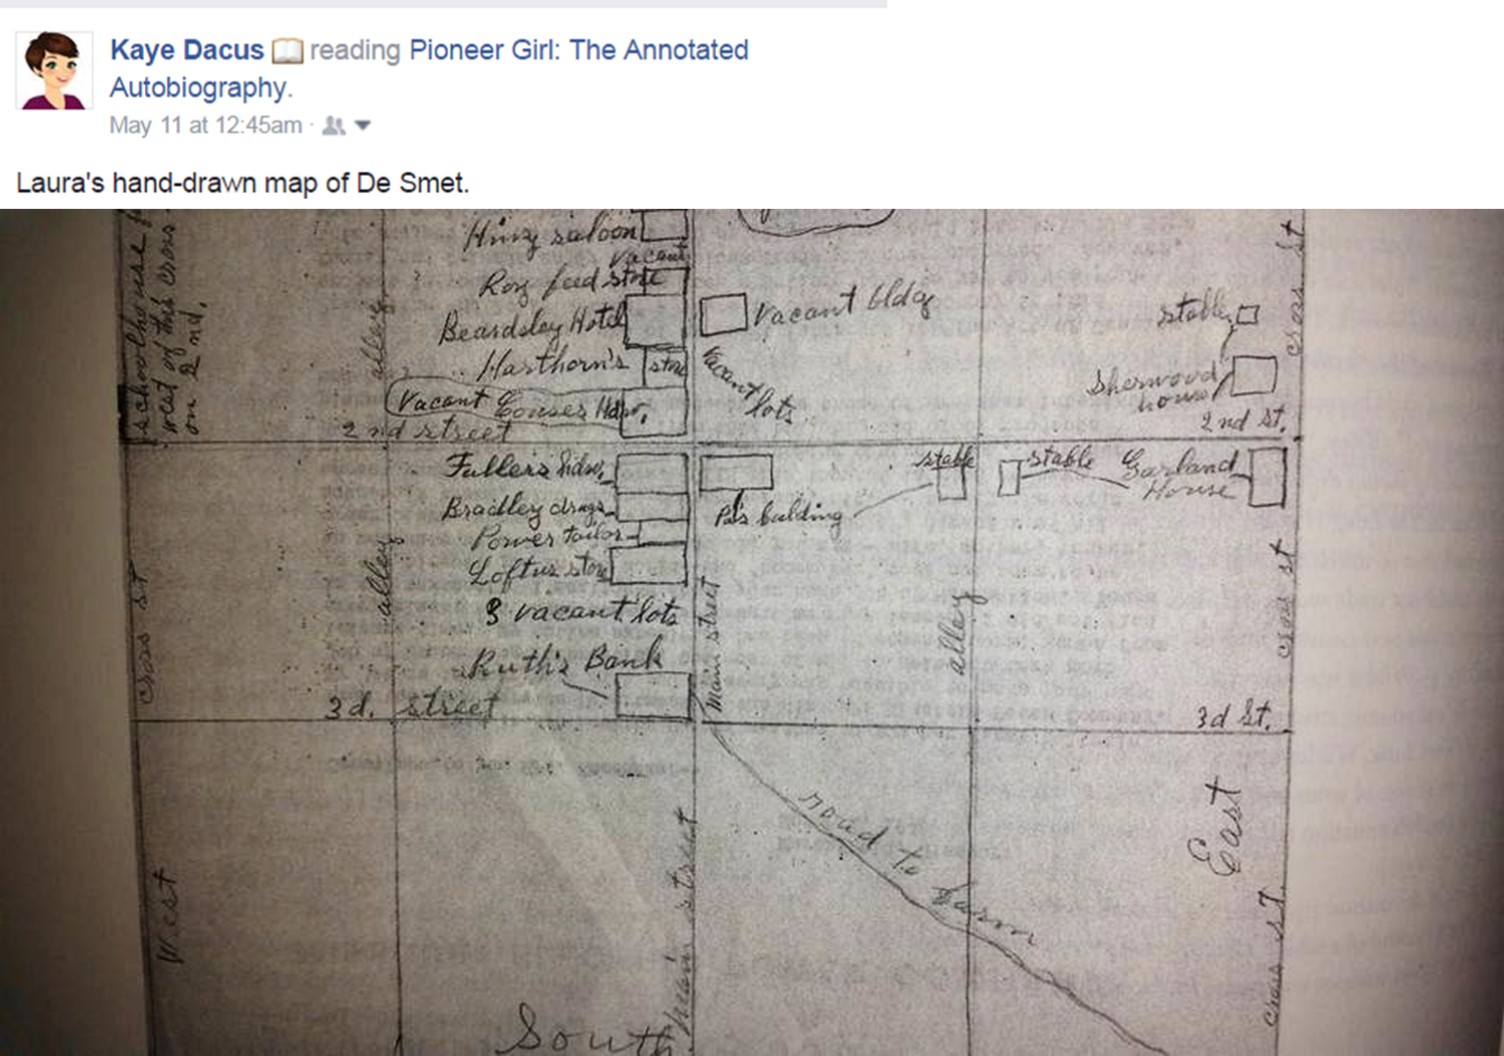 Kaye Dacus reading Pioneer Girl: The Annotated
Autobiography.
May 11 at 12:45am ·
Laura's hand-drawn map of De Smet.
saloon
vacant
feed store
Beardsley Hotel
Vacant bldg
stable
Harthorn's store
Vacant lots
Sherwood house
schoolhouse
west of this cross
on 2nd.
alley
cross st
Vacant Couses Hdw.
2nd street
2nd St.
Fuller's hdw.
stable
stable
Garland House
Bradley drugs
Pa's building
Power tailor
Loftus store
8 vacant lots
alley
cross st
Main street
alley
cross st
Ruth's Bank
3d. street
3d St.
road to farm
East
West
main street
cross st.
South